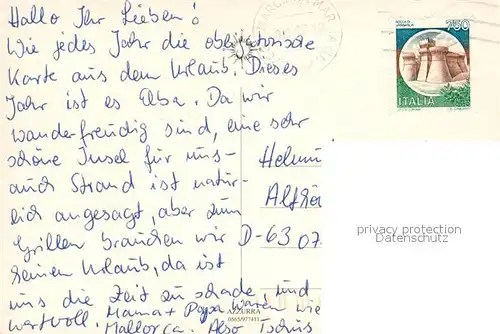 Hallo Ihr Lieben!
Wie jedes Jahr die obligatorische
Karte aus dem Urlaub. Dieses
Jahr ist es Elba. Da wir
wanderfreudig sind, eine sehr
schöne Insel für uns-
auch Strand ist natür-
lich angesagt, aber zum
Grillen brauchen wir
keinen Urlaub, da ist
uns die Zeit zu schade und
wertvoll. Mama + Papa waren wie
Mallorca. Also Tschüs
750
ITALIA
Helmu
D-63 07
privacy protection
Datenschutz
AZZURRA
0865/977411